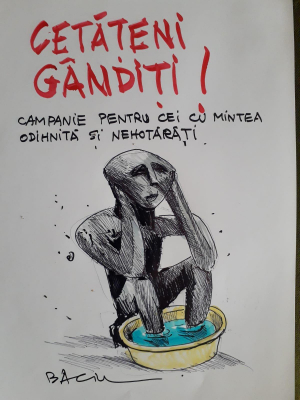 CETĂȚENI
GÂNDIȚI!
CAMPANIE PENTRU CEI CU MINTEA
ODIHNITĂ ȘI NEHOTĂRÂȚI
BACIU